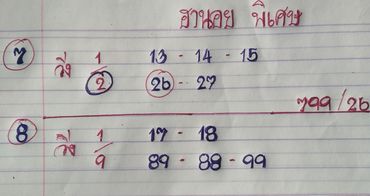 ฮานอย พิเศษ
7 วิ่ง 1/2 13 - 14 - 15
26 - 27
799/26
8 วิ่ง 1/9 17 - 18
89 - 88 - 99